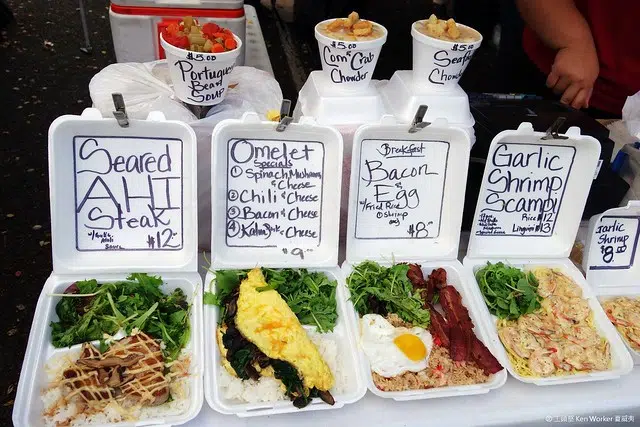 $5.00
Portugues
Bean
Soup
$5.00
Corn Crab
Chowder
$5.00
Seafood
Chowder
Seared
AHI
Steak
Sauce
$12
Omelet
Specials
① Spinach, Mushroom
& Cheese
② Chili & Cheese
③ Bacon & Cheese
④ Kalua & Cheese
$9
Breakfast
Bacon
& Egg
w/Fried Rice
shrimp
$8
Garlic
Shrimp
Scampi
Rice $12
Linguini $13
Garlic
Shrimp
$8.00
Ken Worker